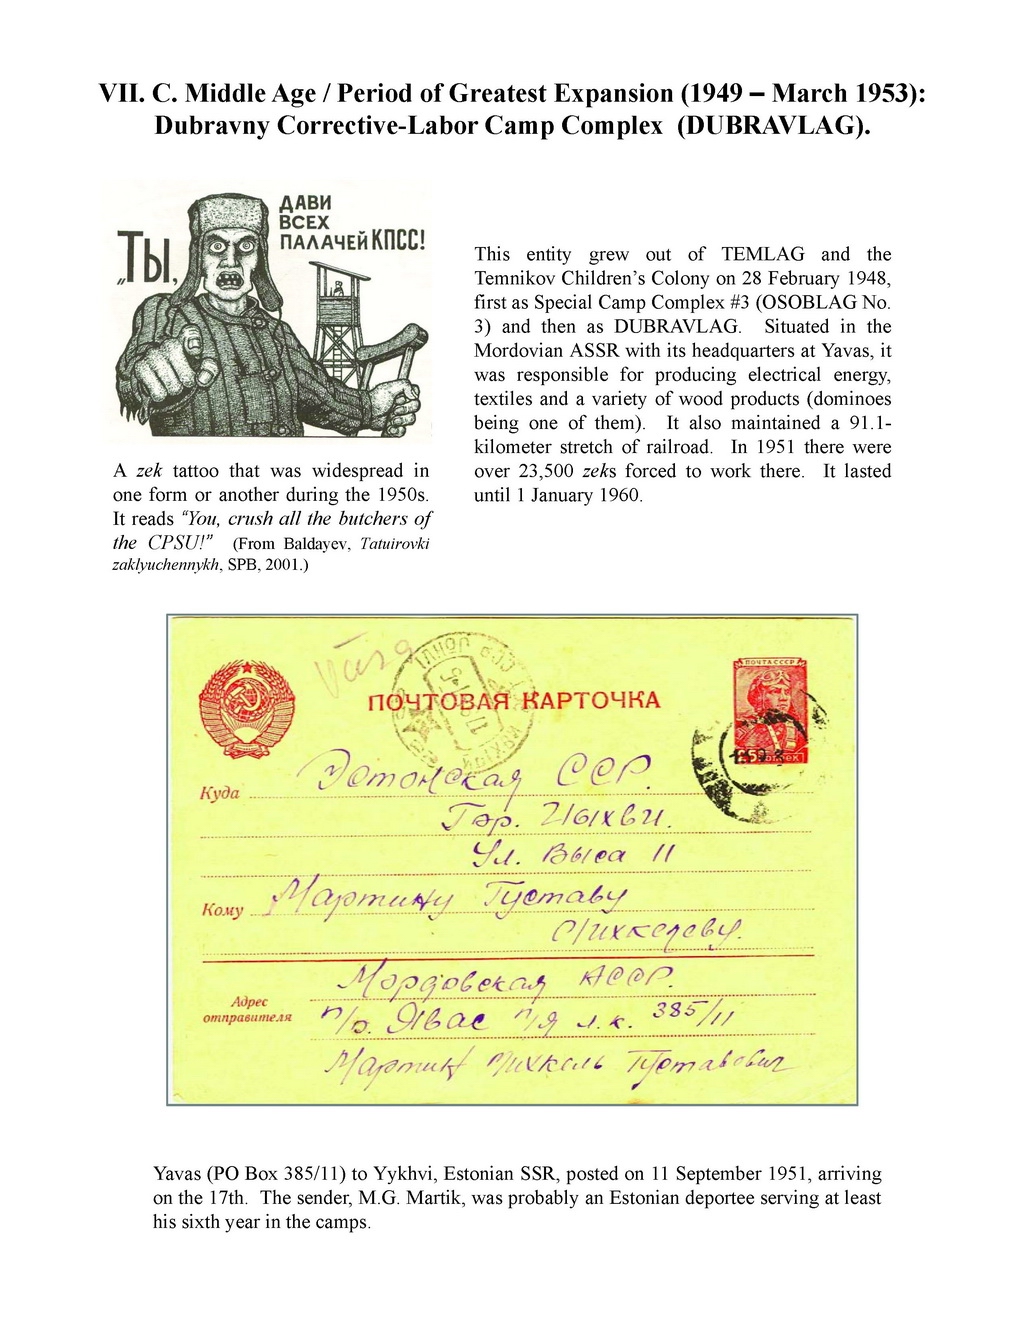 VII. C. Middle Age / Period of Greatest Expansion (1949 – March 1953):
Dubravny Corrective-Labor Camp Complex (DUBRAVLAG).
„ТЫ,
ДАВИ
ВСЕХ
ПАЛАЧЕЙ КПСС!
A zek tattoo that was widespread in
one form or another during the 1950s.
It reads “You, crush all the butchers of
the CPSU!” (From Baldayev, Tatuirovki
zaklyuchennykh, SPB, 2001.)
This entity grew out of TEMLAG and the
Temnikov Children’s Colony on 28 February 1948,
first as Special Camp Complex #3 (OSOBLAG No.
3) and then as DUBRAVLAG. Situated in the
Mordovian ASSR with its headquarters at Yavas, it
was responsible for producing electrical energy,
textiles and a variety of wood products (dominoes
being one of them). It also maintained a 91.1-
kilometer stretch of railroad. In 1951 there were
over 23,500 zeks forced to work there. It lasted
until 1 January 1960.
ПОЧТА СССР
ПОЧТОВАЯ КАРТОЧКА
Куда Эстонская ССР.
Гор. Йыхви.
Ул. Выса 11
Кому Мартину Густаву
Михкелеву.
Адрес
отправителя
Мордовская АССР.
п/о. Явас п/я л.к. 385/11
Михкель Густавович
Yavas (PO Box 385/11) to Yykhvi, Estonian SSR, posted on 11 September 1951, arriving
on the 17th. The sender, M.G. Martik, was probably an Estonian deportee serving at least
his sixth year in the camps.